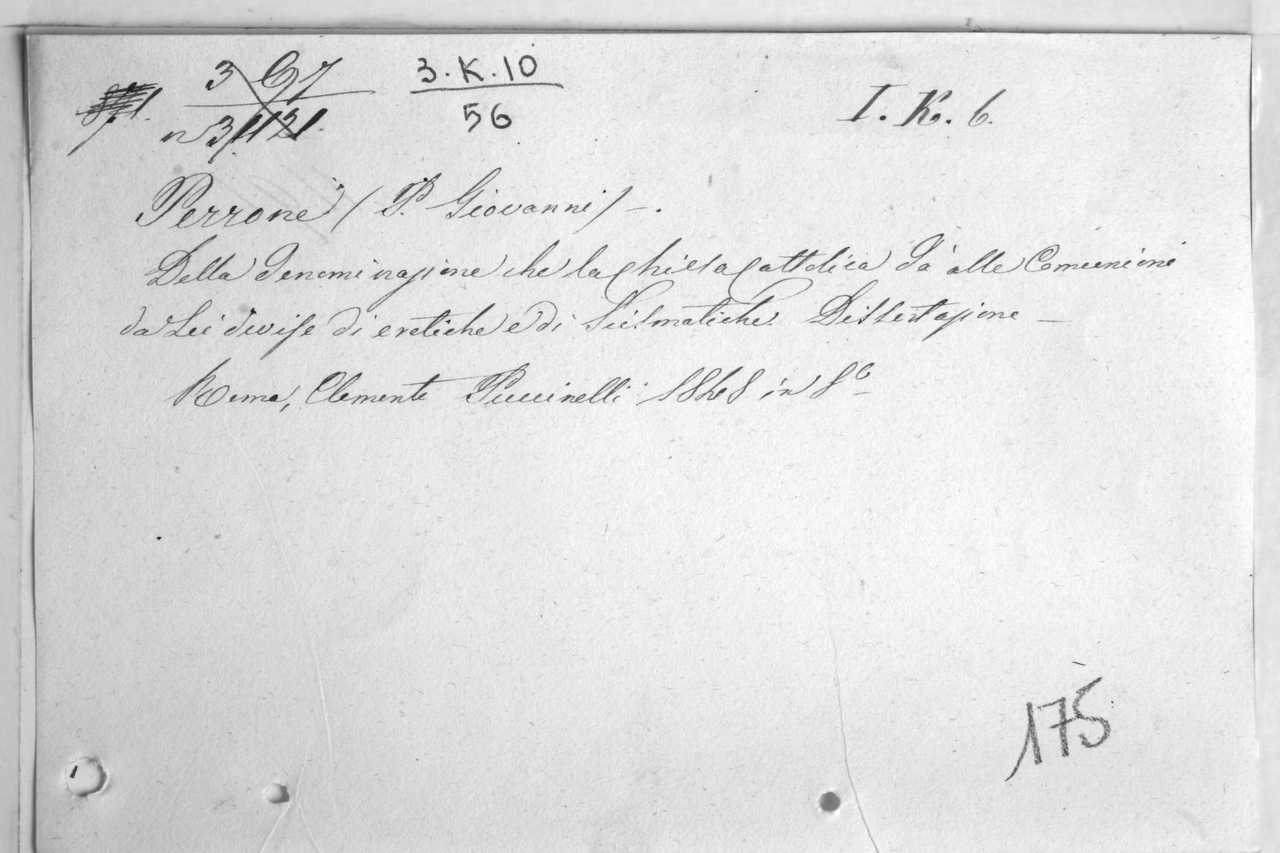 3.K.10
56
I. K. 6.
Perrone (P. Giovanni) -.
Della denominazione che la Chiesa Cattolica dà alle Comunioni
da Lei divise di eretiche e di Scismatiche. Dissertazione -
Roma, Clemente Puccinelli 1848 in 8º
175